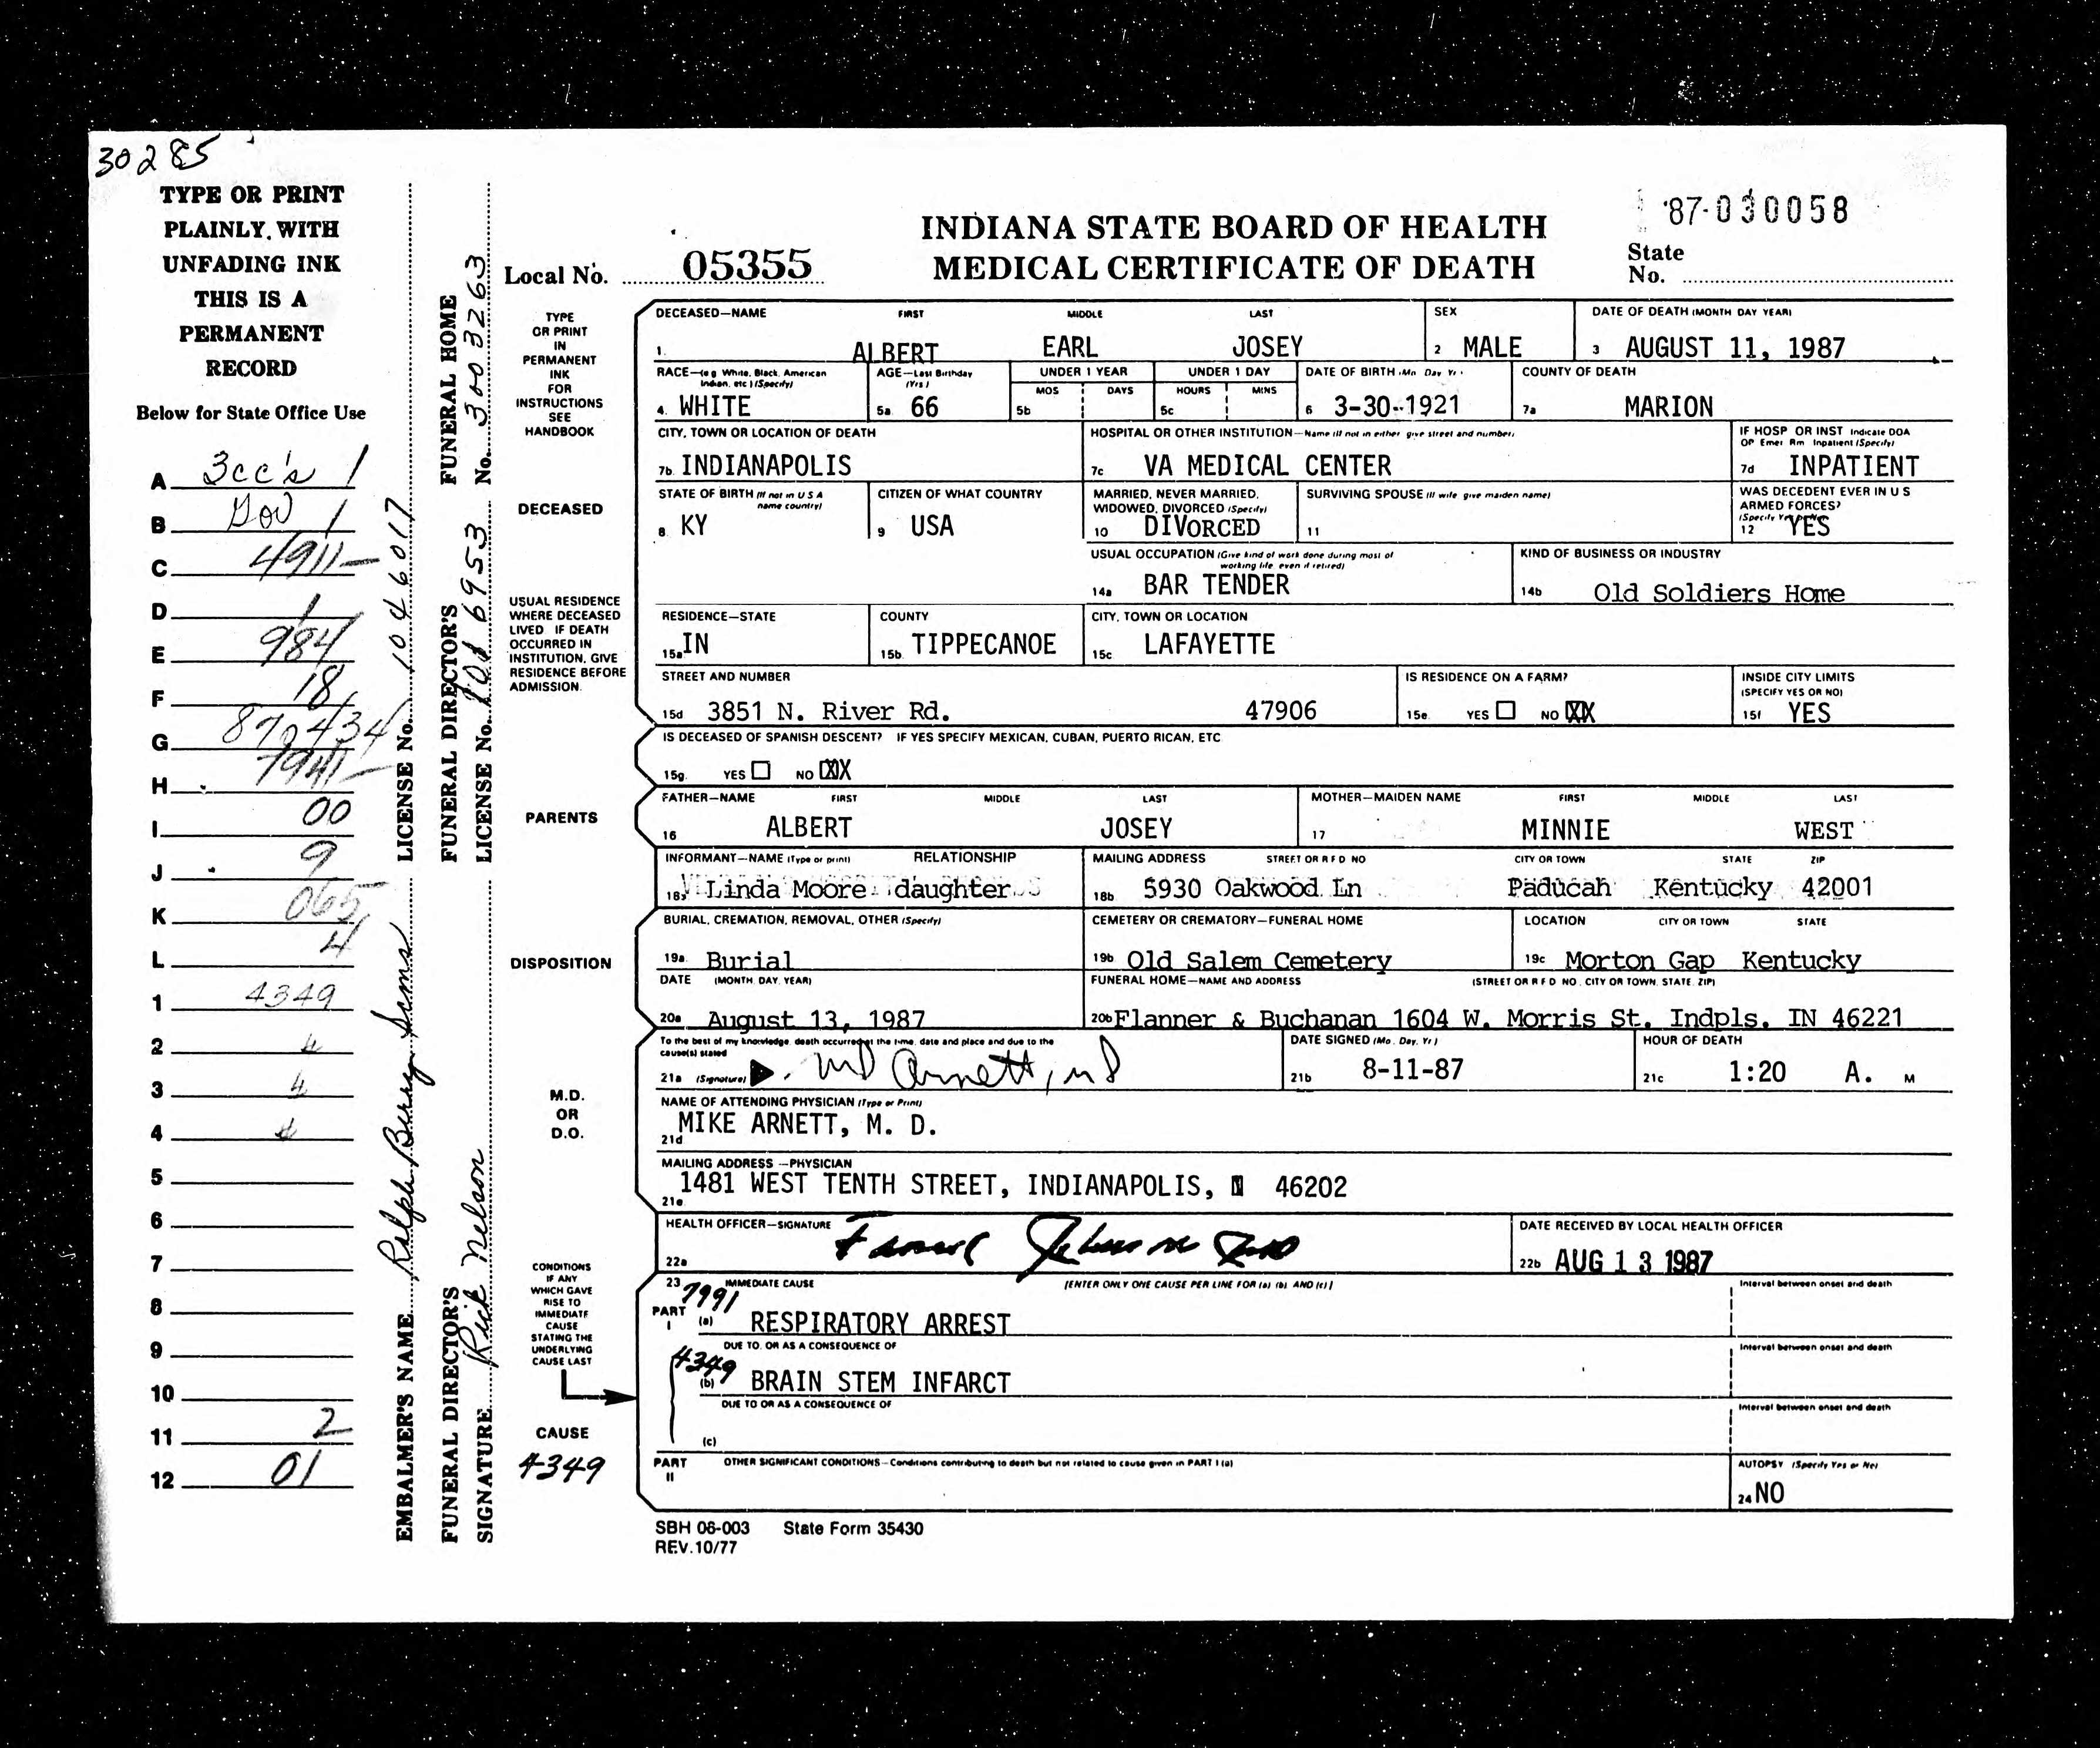 30285
TYPE OR PRINT
PLAINLY, WITH
UNFADING INK
THIS IS A
PERMANENT
RECORD
Below for State Office Use
A 3cc's 1
B Gov 1
C 4911-
D 1
E 984
F 18
G 870434
H 7941-
I 00
J 9
K 065
L 4
1 4349
2 4
3 4
4 4
5
6
7
8
9
10
11 2
12 01
EMBALMER'S NAME Ralph Berry Sims LICENSE No. 1046017
FUNERAL DIRECTOR'S SIGNATURE Rick Nelson
FUNERAL DIRECTOR'S LICENSE No. 1016953
FUNERAL HOME No. 3003263
Local No. 05355
INDIANA STATE BOARD OF HEALTH
MEDICAL CERTIFICATE OF DEATH
'87-030058
State
No.
TYPE
OR PRINT
IN
PERMANENT
INK
FOR
INSTRUCTIONS
SEE
HANDBOOK
DECEASED—NAME FIRST MIDDLE LAST
1. ALBERT EARL JOSEY
SEX
2 MALE
DATE OF DEATH (MONTH DAY YEAR)
3 AUGUST 11, 1987
RACE—(e g White, Black, American Indian, etc ) (Specify)
4. WHITE
AGE—Last Birthday (Yrs )
5a 66
UNDER 1 YEAR
MOS DAYS
5b
UNDER 1 DAY
HOURS MINS
5c
DATE OF BIRTH (Mo Day Yr )
6 3-30-1921
COUNTY OF DEATH
7a MARION
CITY, TOWN OR LOCATION OF DEATH
7b. INDIANAPOLIS
HOSPITAL OR OTHER INSTITUTION—Name (If not in either give street and number)
7c VA MEDICAL CENTER
IF HOSP OR INST Indicate DOA
OP Emer Rm Inpatient (Specify)
7d INPATIENT
DECEASED
STATE OF BIRTH (If not in U S A name country)
8. KY
CITIZEN OF WHAT COUNTRY
9 USA
MARRIED, NEVER MARRIED,
WIDOWED, DIVORCED (Specify)
10 DIVORCED
SURVIVING SPOUSE (If wife give maiden name)
11
WAS DECEDENT EVER IN U S
ARMED FORCES?
(Specify Yes or No)
12 YES
USUAL OCCUPATION (Give kind of work done during most of
working life even if retired)
14a BAR TENDER
KIND OF BUSINESS OR INDUSTRY
14b Old Soldiers Home
USUAL RESIDENCE
WHERE DECEASED
LIVED IF DEATH
OCCURRED IN
INSTITUTION, GIVE
RESIDENCE BEFORE
ADMISSION.
RESIDENCE—STATE
15a IN
COUNTY
15b. TIPPECANOE
CITY, TOWN OR LOCATION
15c LAFAYETTE
STREET AND NUMBER
15d 3851 N. River Rd. 47906
IS RESIDENCE ON A FARM?
15e. YES NO XX
INSIDE CITY LIMITS
(SPECIFY YES OR NO)
15f YES
IS DECEASED OF SPANISH DESCENT? IF YES SPECIFY MEXICAN, CUBAN, PUERTO RICAN, ETC
15g. YES NO XX
PARENTS
FATHER—NAME FIRST MIDDLE LAST
16 ALBERT JOSEY
MOTHER—MAIDEN NAME FIRST MIDDLE LAST
17 MINNIE WEST
INFORMANT—NAME (Type or print) RELATIONSHIP
18a Linda Moore daughter
MAILING ADDRESS STREET OR R F D NO CITY OR TOWN STATE ZIP
18b 5930 Oakwood Ln Paducah Kentucky 42001
DISPOSITION
BURIAL, CREMATION, REMOVAL, OTHER (Specify)
19a. Burial
CEMETERY OR CREMATORY—FUNERAL HOME
19b Old Salem Cemetery
LOCATION CITY OR TOWN STATE
19c Morton Gap Kentucky
DATE (MONTH, DAY, YEAR)
20a August 13, 1987
FUNERAL HOME—NAME AND ADDRESS (STREET OR R F D NO, CITY OR TOWN, STATE, ZIP)
20b Flanner & Buchanan 1604 W. Morris St. Indpls. IN 46221
M.D.
OR
D.O.
To the best of my knowledge, death occurred at the time, date and place and due to the
cause(s) stated
21a (Signature) MD Arnett, MD
DATE SIGNED (Mo. Day, Yr )
21b 8-11-87
HOUR OF DEATH
21c 1:20 A. M
NAME OF ATTENDING PHYSICIAN (Type or Print)
21d MIKE ARNETT, M. D.
MAILING ADDRESS —PHYSICIAN
21e 1481 WEST TENTH STREET, INDIANAPOLIS, IN 46202
HEALTH OFFICER—SIGNATURE
22a
DATE RECEIVED BY LOCAL HEALTH OFFICER
22b AUG 13 1987
CONDITIONS
IF ANY
WHICH GAVE
RISE TO
IMMEDIATE
CAUSE
STATING THE
UNDERLYING
CAUSE LAST
CAUSE
4349
23. IMMEDIATE CAUSE [ENTER ONLY ONE CAUSE PER LINE FOR (a) (b) AND (c)]
Interval between onset and death
PART I 7991
(a) RESPIRATORY ARREST
DUE TO, OR AS A CONSEQUENCE OF
Interval between onset and death
4349
(b) BRAIN STEM INFARCT
DUE TO OR AS A CONSEQUENCE OF
Interval between onset and death
(c)
PART II OTHER SIGNIFICANT CONDITIONS—Conditions contributing to death but not related to cause given in PART I (a)
AUTOPSY (Specify Yes or No)
24 NO
SBH 06-003 State Form 35430
REV.10/77